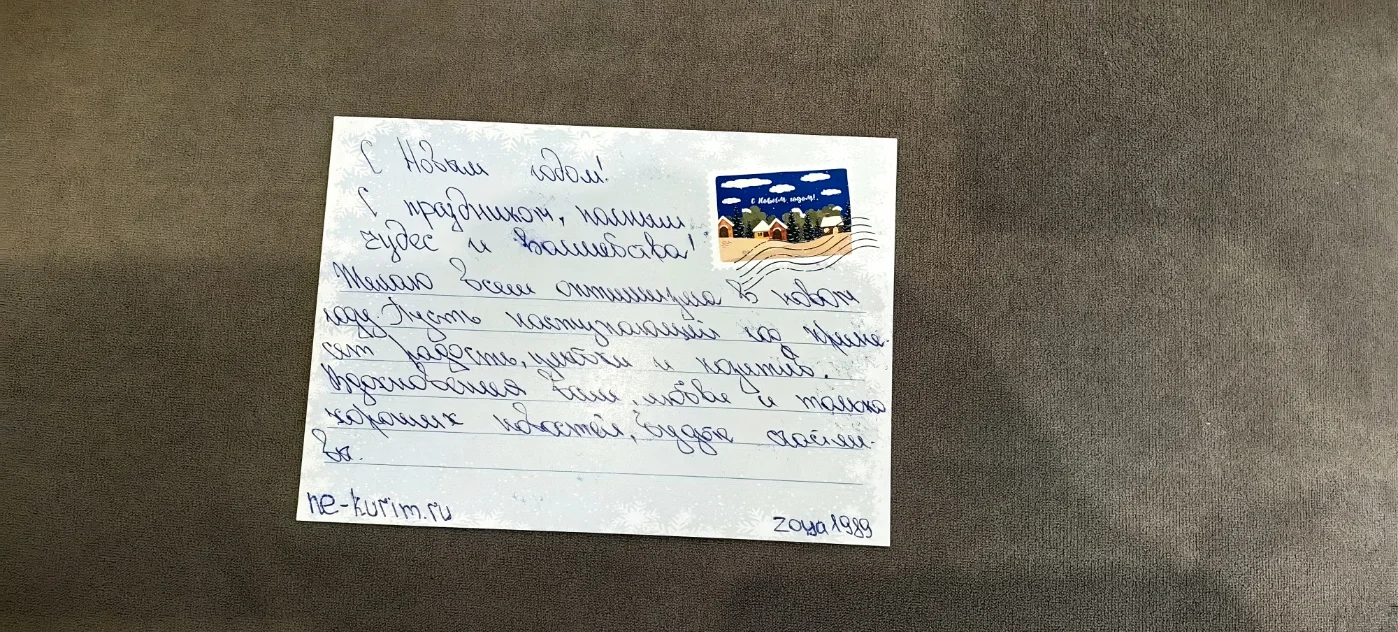 С Новым годом!
С праздником, полным
чудес и волшебства!
С Новым годом!
Желаю всем оптимизма в новом
году. Пусть наступающий год прине-
сет радость, улыбки и позитив.
Вдохновения Вам, любви и только
хороших новостей, будьте счастли-
вы.
ne-kurim.ru
zoya1989